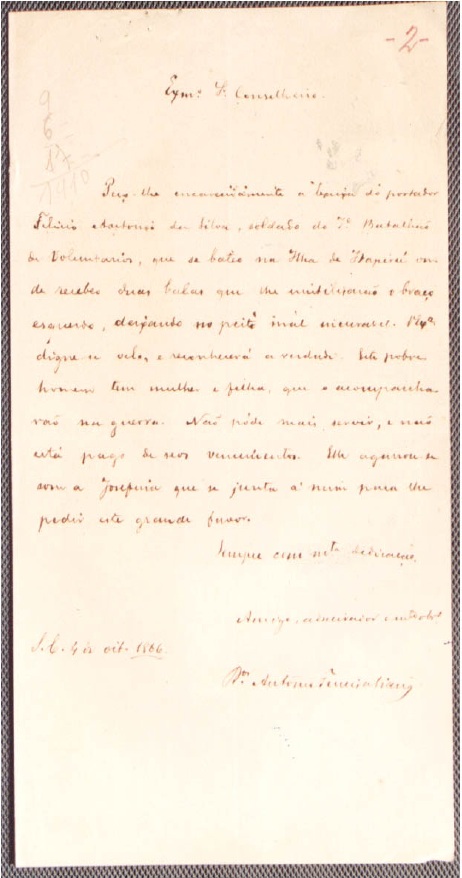 -2-
Exm.º Sr. Conselheiro.
9
6
17
1910
Peço-lhe encarecidamente a do portador
Felicio Antonio da Silva, soldado do 7º Batalhão
de Voluntarios, que se bateo na Ilha de Itapirú on-
de recebeo duas balas que lhe inutilizarão o braço
esquerdo, deixando no peito mál incuravel. V Exª
digne-se velo, e reconhecerá a verdade. Este pobre
homem tem mulher e filha, que o acompanha-
rão na guerra. Não póde mais servir, e não
está pago de seos vencimentos. Elle agarrou-se
com a Josefina que se junta á mim para lhe
pedir este grande favor.
Sempre com mtª dedicação,
Amigo, 
S. C. 4 de oit. 1866.
Dr. Antonio